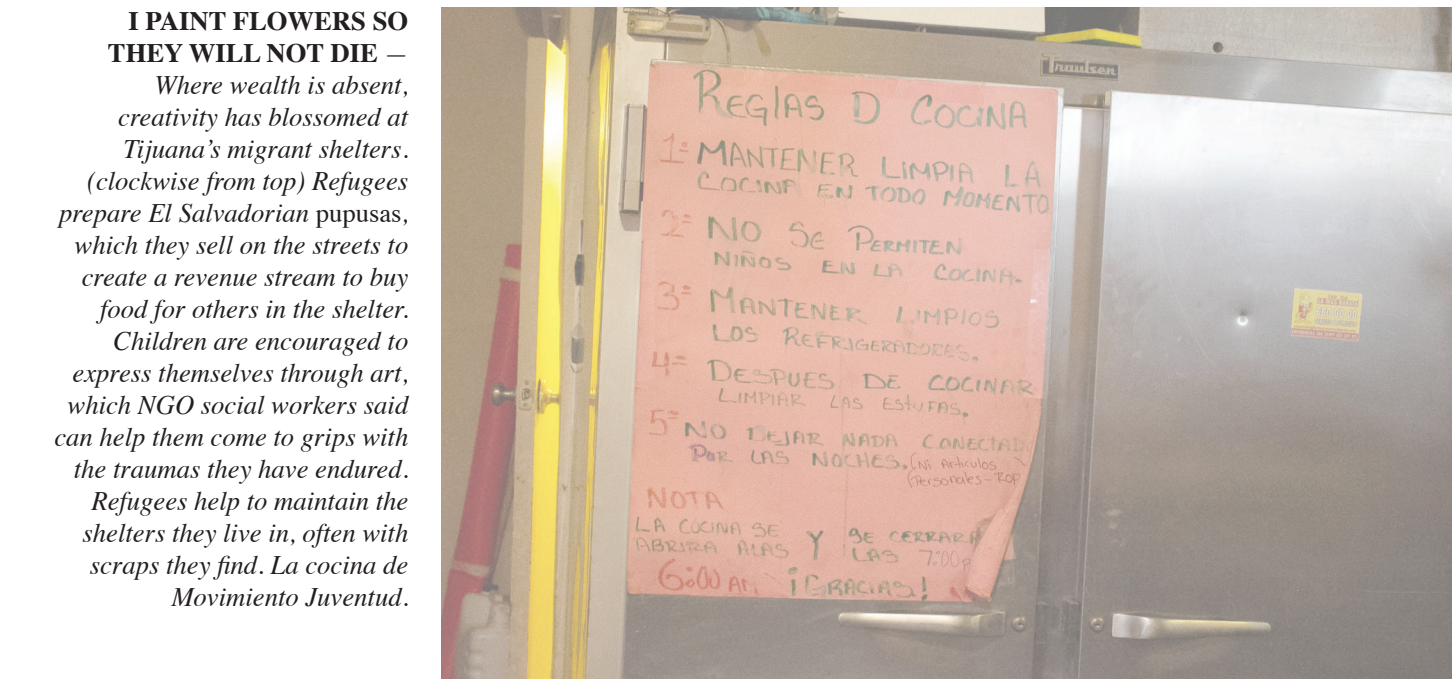 I PAINT FLOWERS SO
THEY WILL NOT DIE —
Where wealth is absent,
creativity has blossomed at
Tijuana’s migrant shelters.
(clockwise from top) Refugees
prepare El Salvadorian pupusas,
which they sell on the streets to
create a revenue stream to buy
food for others in the shelter.
Children are encouraged to
express themselves through art,
which NGO social workers said
can help them come to grips with
the traumas they have endured.
Refugees help to maintain the
shelters they live in, often with
scraps they find. La cocina de
Movimiento Juventud.
Traulsen
REGlAS D COCiNA
1= MANTENER LiMPiA LA
COCINA EN TODO MOMENTO
2= NO SE PERMITEN
NIÑOS EN LA COCINA-
3= MANTENER LIMPIOS
LOS REFRIGERADORES.
4= DESPUES DE COCINAR
LIMPIAR LAS EStUFAS.
5= NO DEJAR NADA CONECTAD
POR LAS NOCHES. (Ni Articulos
(Personales-ROP
NOTA
LA COCINA SE
ABRIRA ALAS
Y
SE CERRARA
LAS 7:00p
6:00 AM ¡GRACIAS!